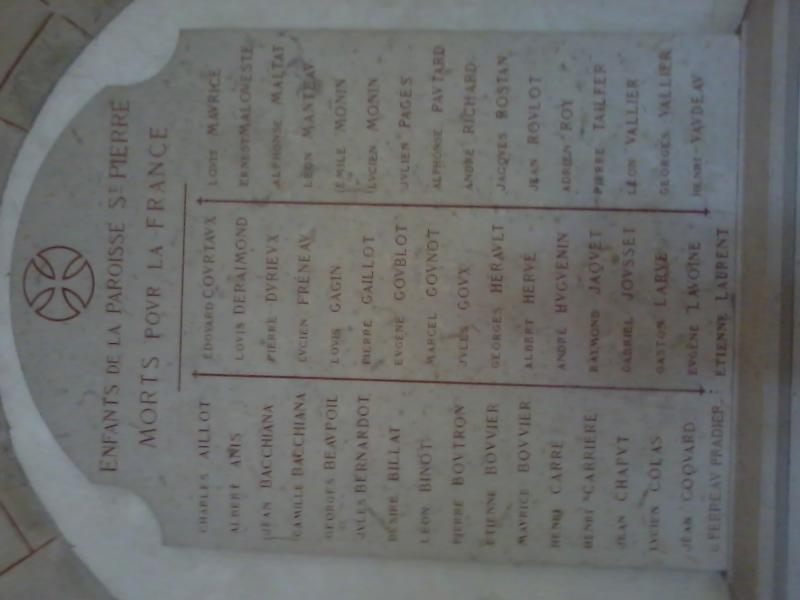 ENFANTS DE LA PAROISSE ST PIERRE
MORTS POVR LA FRANCE
CHARLES AILLOT
ALBERT ANIS
JEAN BACCHIANA
CAMILLE BACCHIANA
GEORGES BEAVPOIL
JVLES BERNARDOT
DESIRE BILLAT
LEON BINOT
PIERRE BOVTRON
ETIENNE BOVVIER
MAVRICE BOVVIER
HENRI CARRÉ
HENRI CARRIÈRE
JEAN CHAPVT
LVCIEN COLAS
JEAN COQVARD
PRADIER
EDOVARD COVRTAVX
LOVIS DERAIMOND
PIERRE DVRIEVX
LVCIEN FRÉNEAV
LOVIS GAGIN
PIERRE GAILLOT
EVGÈNE GOVBLOT
MARCEL GOVNOT
JVLES GOVX
GEORGES HERAVLT
ALBERT HERVÉ
ANDRÉ HVGVENIN
RAYMOND JAQVET
GABRIEL JOVSSET
GASTON LARVE
EVGÈNE LAVOINE
ETIENNE LAVRENT
LOVIS MAVRICE
ERNEST MALONESTE
ALPHONSE MALTAT
LÉON MANTEAV
EMILE MONIN
LVCIEN MONIN
JVLIEN PAGÈS
ALPHONSE PAVTARD
ANDRÉ RICHARD
JACQVES ROSTAN
JEAN ROVLOT
ADRIEN ROY
PIERRE TAILFER
LÉON VALLIER
GEORGES VALLIER
HENRI VAVDEAV